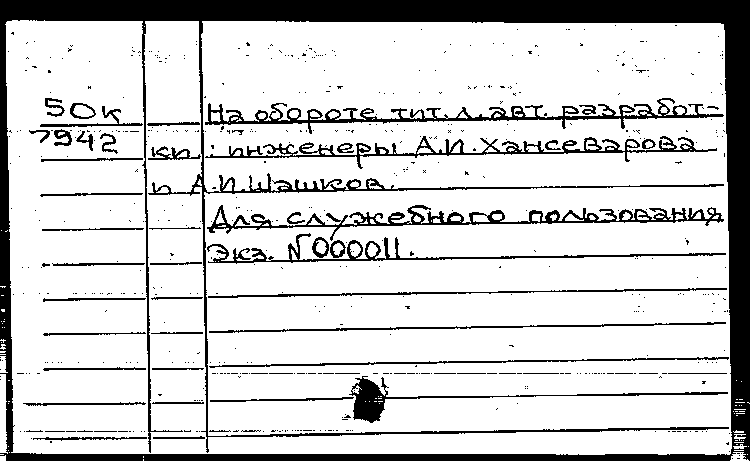 50к На обороте тит. л. авт. разработ-
7942 ки : инженеры А.И. Хансеварова
и А.И. Шашков.
Для служебного пользования
Экз. № 000011.